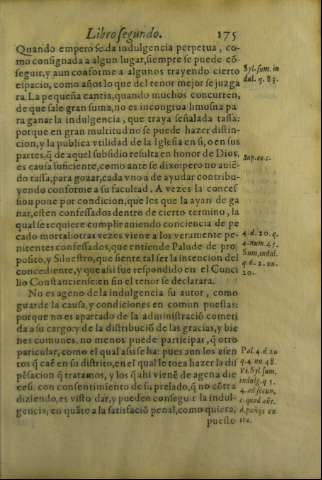 Libro segundo. 175
Quando empero se da indulgencia perpetua, co-
mo consignada a algun lugar, siempre se puede cõ-
seguir, y aun conforme a algunos trayendo cierto
espacio, como años lo que del tenor mejor se juzga
ra. La pequeña cantia, quando muchos concurren,
de que sale gran suma, no es incongrua limosna pa
ra ganar la indulgencia, que traya señalada tassa:
porque en gran multitud no se puede hazer distin-
cion, y la publica vtilidad de la Iglesia en si, o en sus
partes, q̃ de aquel subsidio resulta en honor de Dios,
es causa suficiente, como ante se dixo: pero no auiẽ-
do tassa, para gozar, cada vno a de ayudar contribu-
yendo conforme a su facultad. A vezes la conces
sion pone por condicion, que los que la ayan de ga
nar, esten confessados dentro de cierto termino, la
qual se requiere cumplir auiendo conciencia de pe
cado mortal: otras vezes viene a los veramente pe-
nitentes confessados, que entiende Palude de pro-
posito, y Siluestro, que siente tal ser la intencion del
concediente, y que assi fue respondido en el Conci
lio Constanciense: en fin el tenor se declarara.
No es ageno de la indulgencia su autor, como
guarde la causa, y condiciones en comun puestas:
porque no es apartado de la administració cometi
da a su cargo: y de la distribució de las gracias, y bie
nes comunes, no menos puede participar, q̃ otro
particular, como el qual assi se ha: pues aun los esen
tos q̃ caẽ en su distrito, en el qual le toca hazer la dis
pẽsacion q̃ tratamos, y los q̃ ahi vienẽ de agena dio
cesi, con consentimiento de su prelado, q̃ no cõtra
diziendo, es visto dar, y pueden conseguir la indul-
gencia, en quãto a la satisfació penal, como quiera,
puesto
Syl. sum. in
dul. q. 83.
Sup. eo. c.
4. d. 20. q.
4. num. 25.
Sum. indul.
q. 6. 2. nu.
20.
Pal. 4. d. 20
q. 4. nu. 48.
Vt Syl. sum.
indulg. q 5.